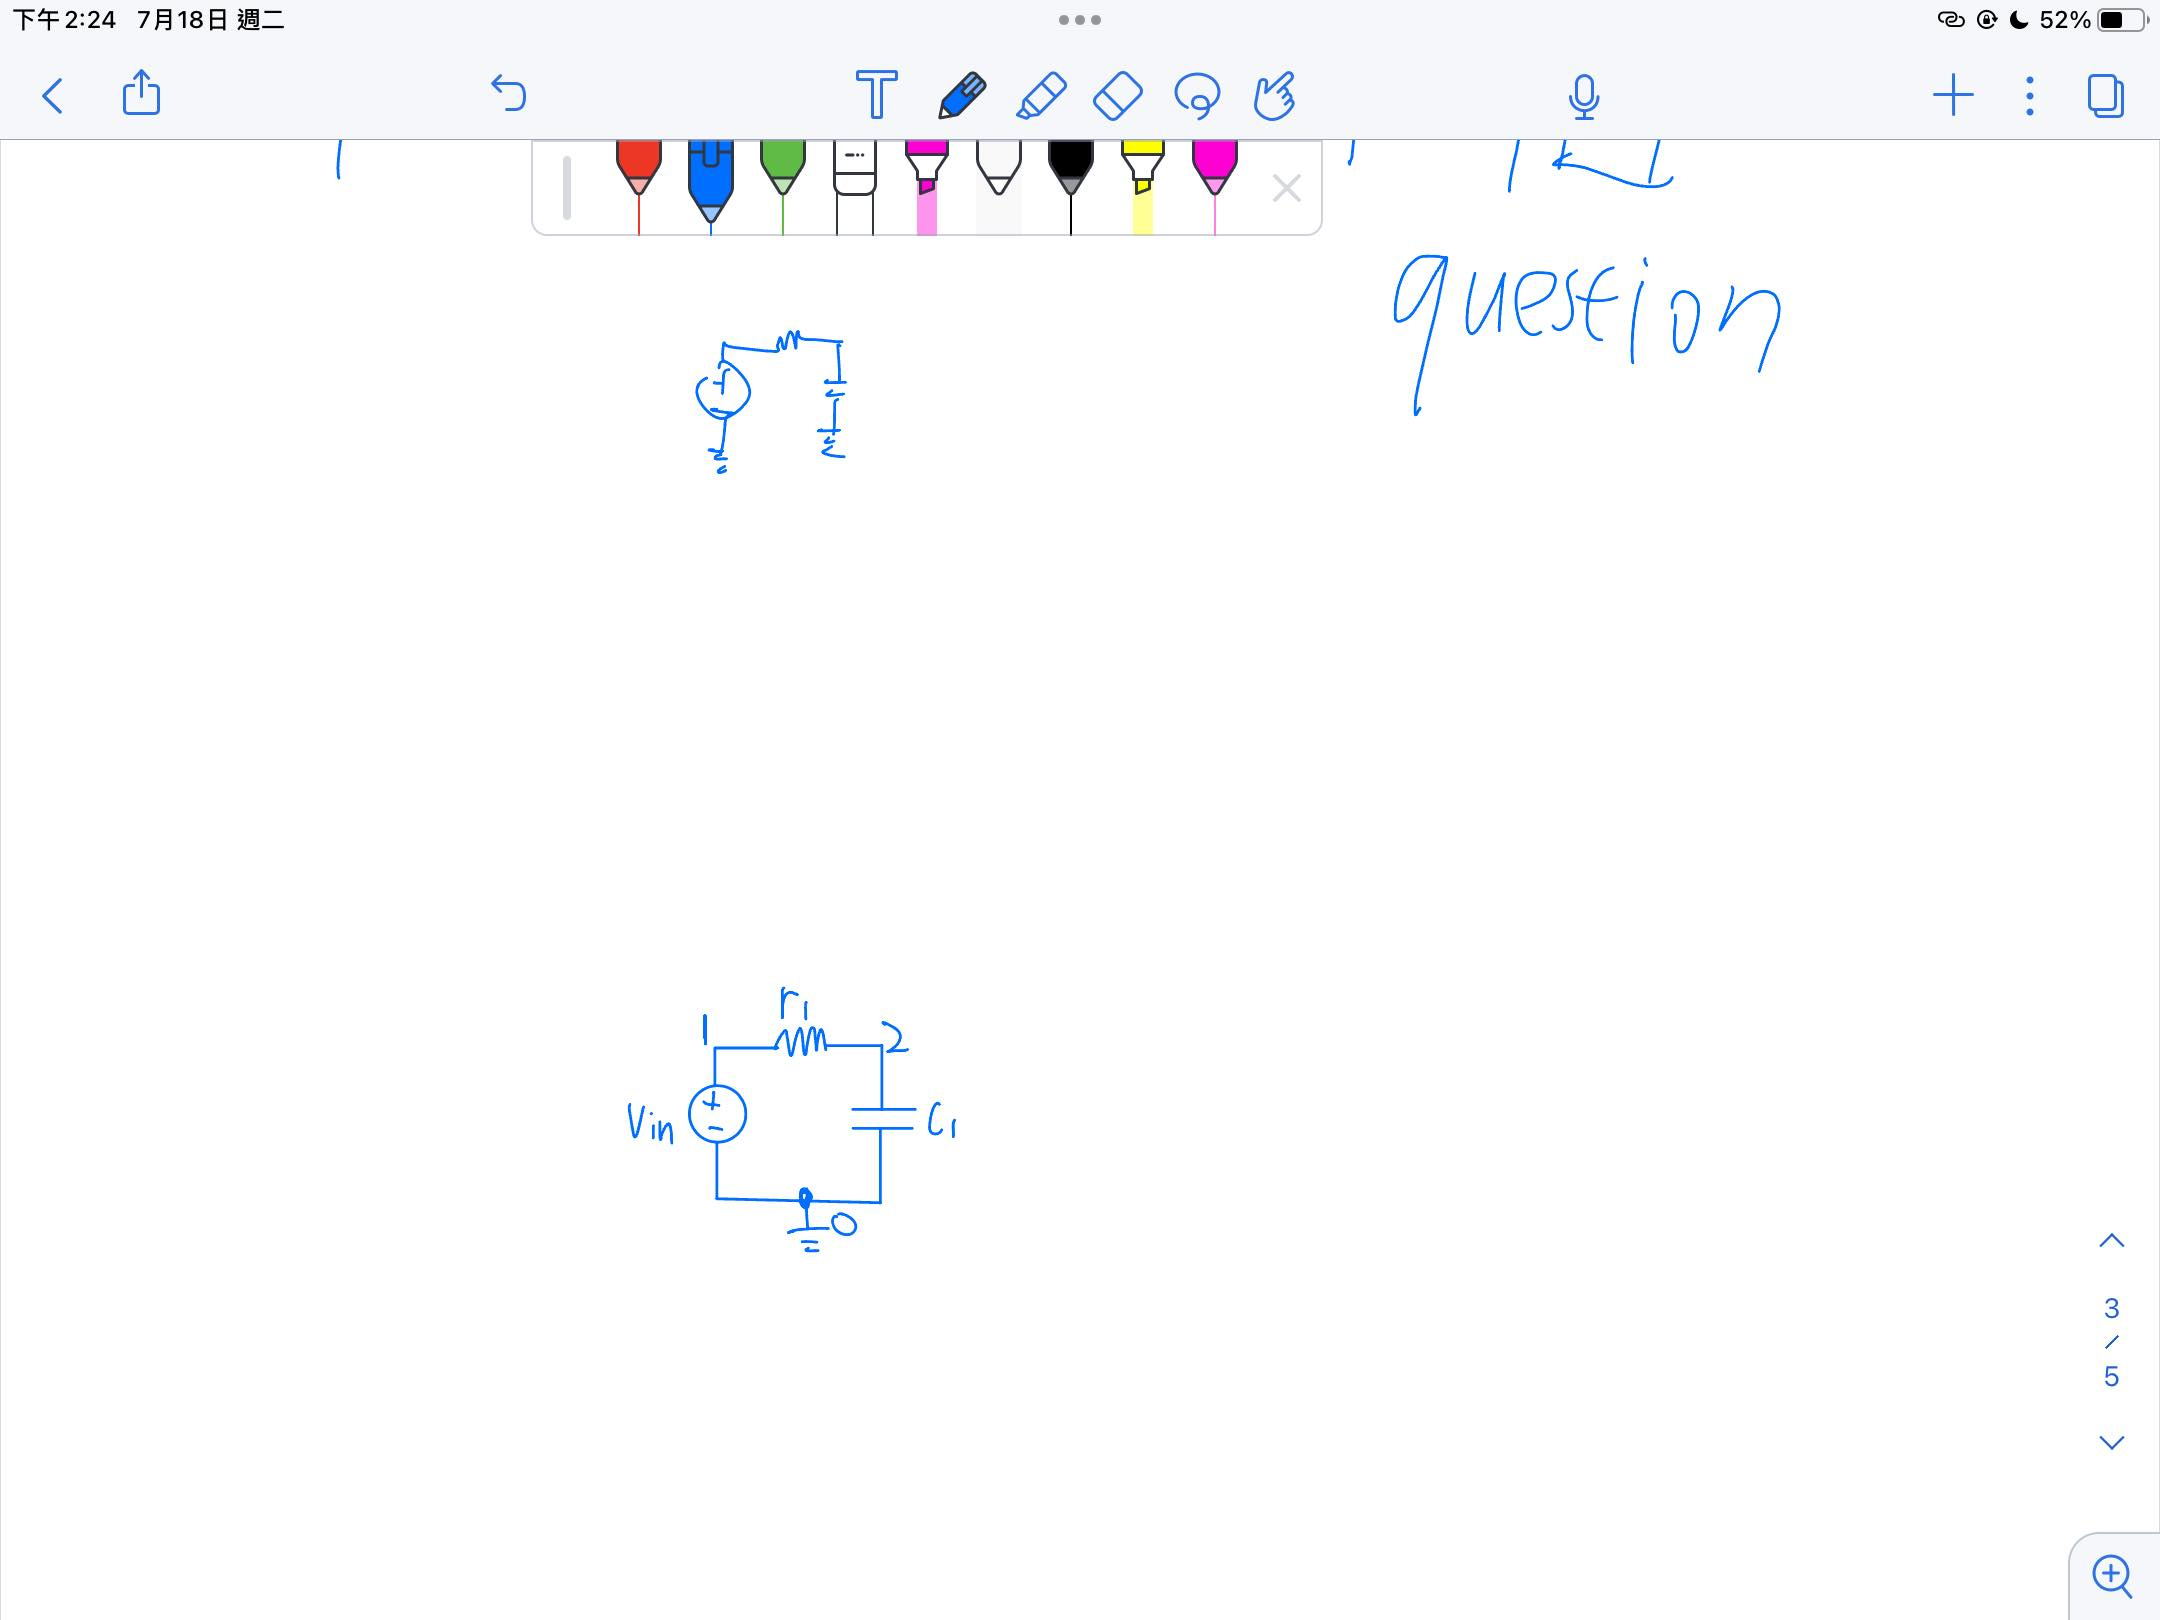 下午2:24 7月18日 週二 52%
question
r1
1 2
Vin + - C1
0
3
/
5